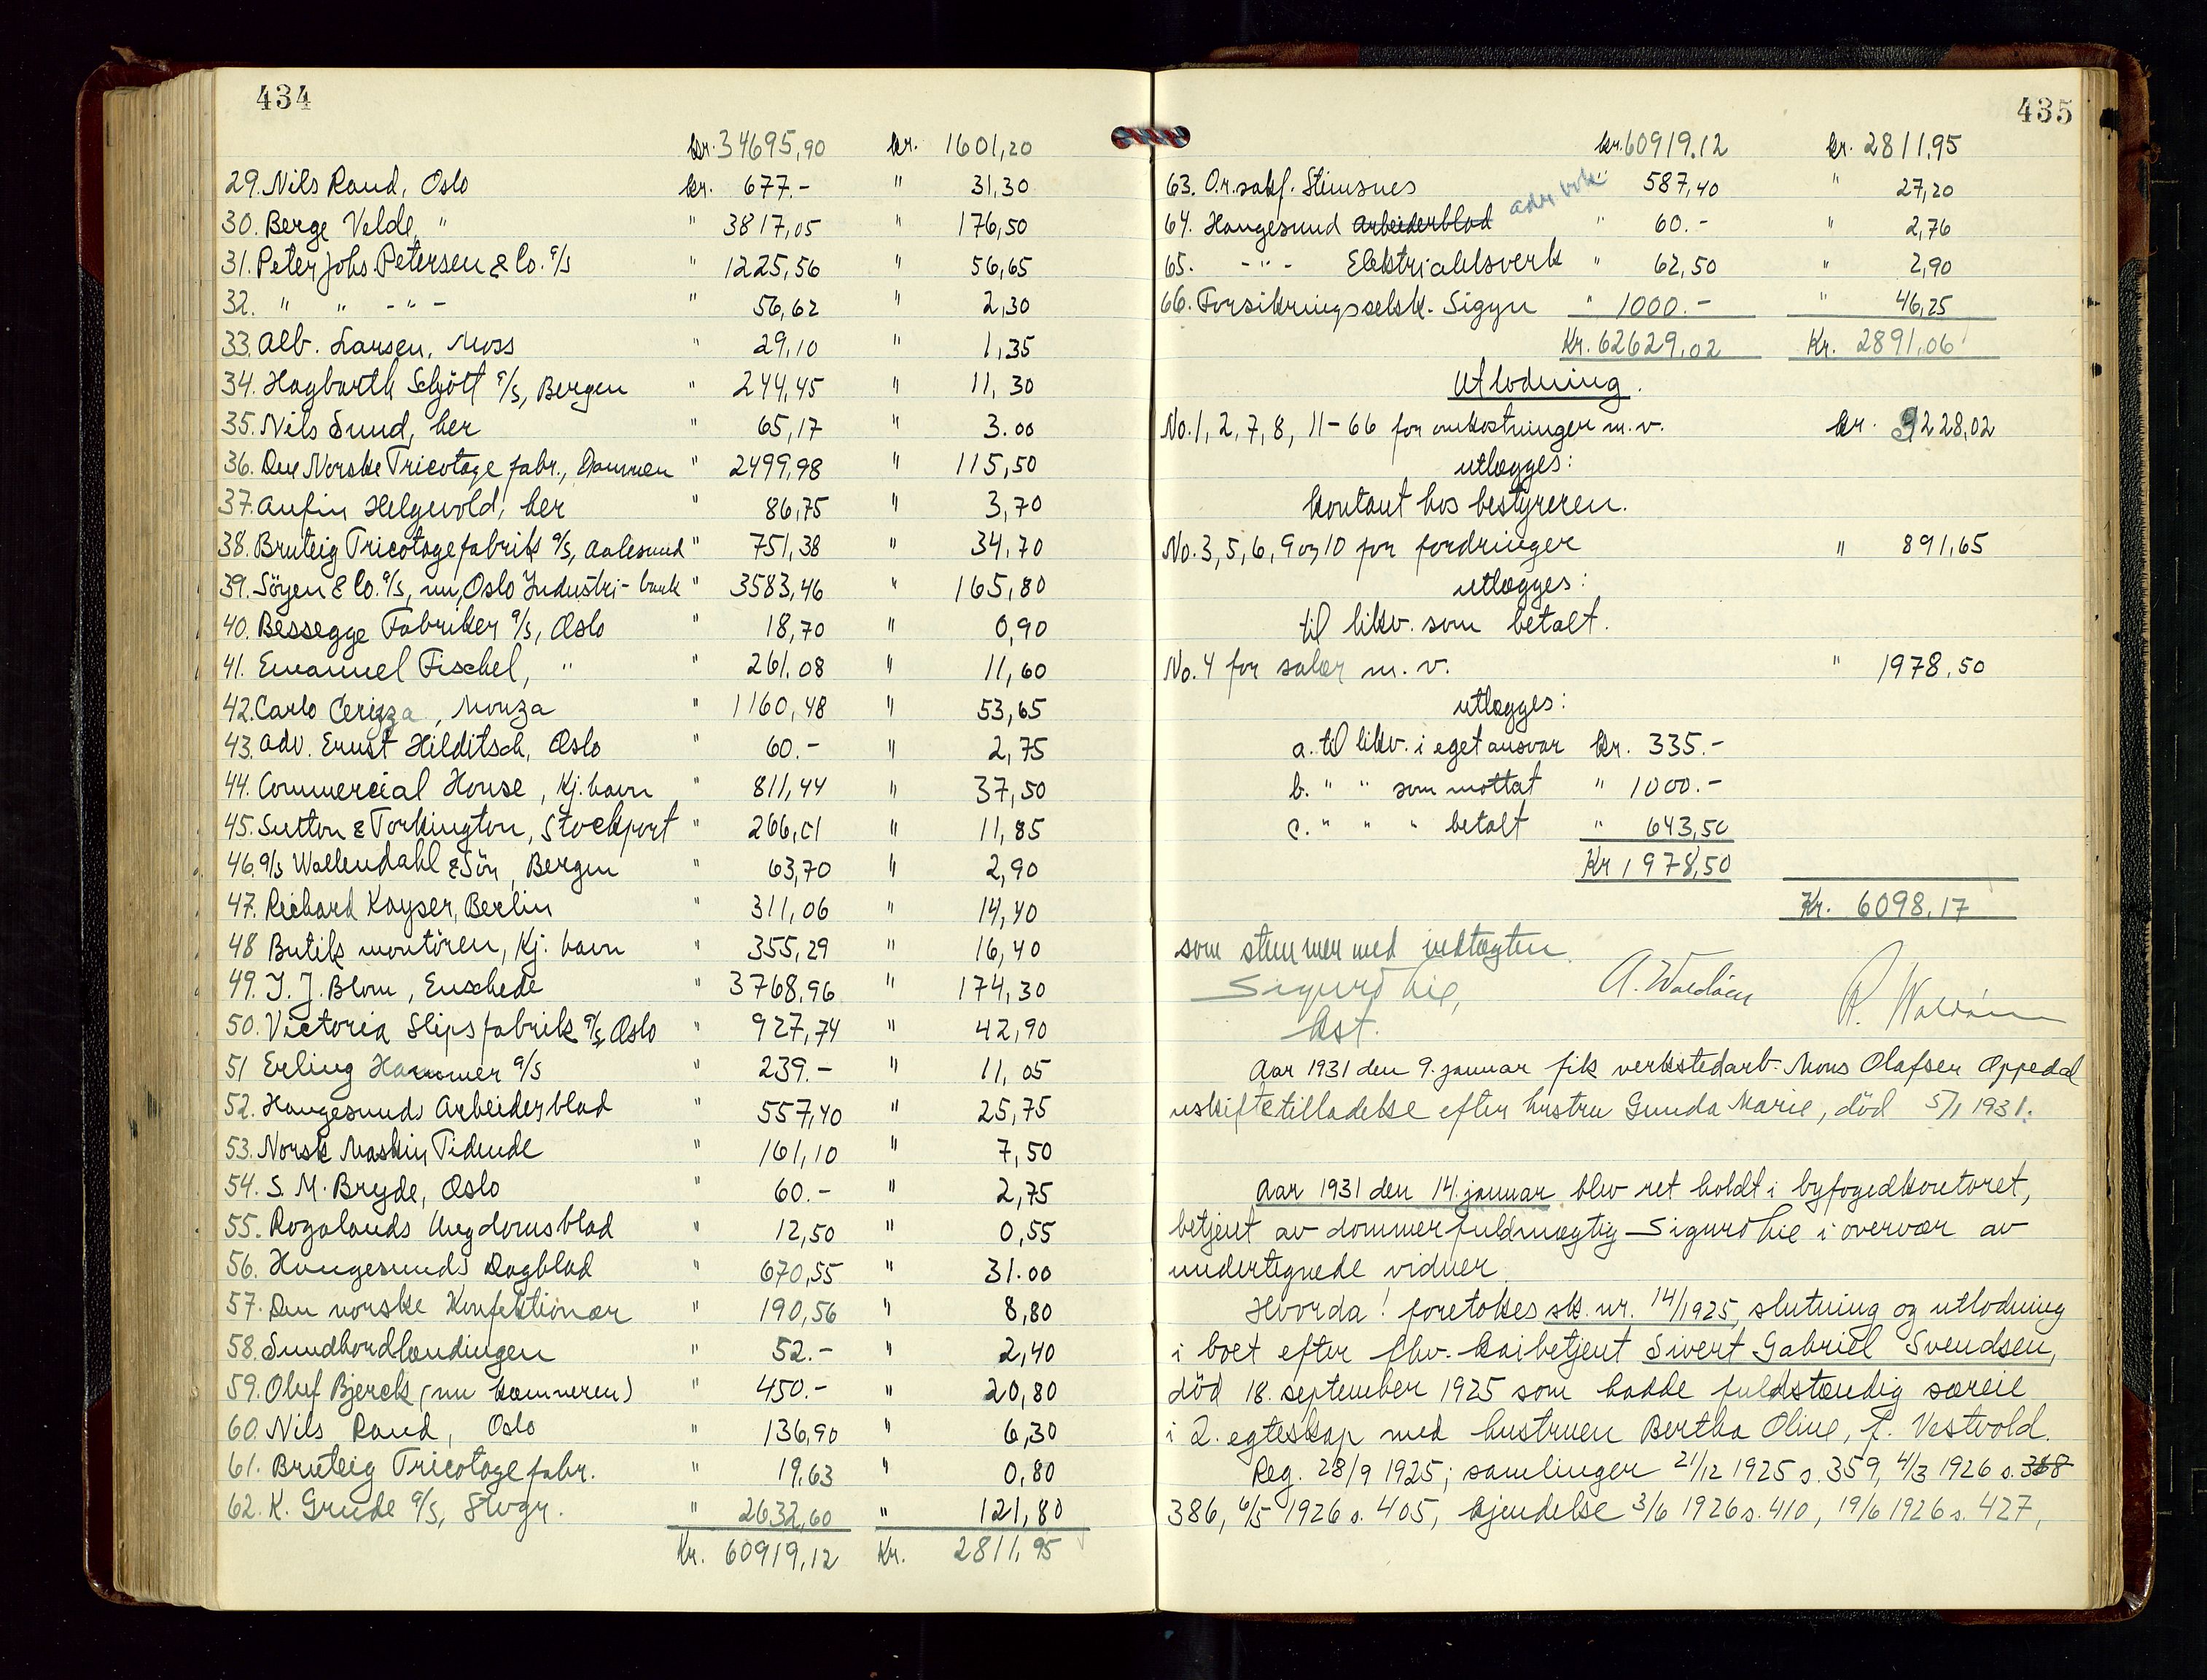 434
kr. 34695,90 kr. 1601,20
29. Nils Rand, Oslo kr. 677.- " 31,30
30. Berge Velde, " " 3817,05 " 176,50
31. Peter Johs. Petersen & Co. A/S " 1225,56 " 56,65
32. " " - " - " 56,62 " 2,30
33. Alb. Larsen, Moss " 29,10 " 1,35
34. Hagbarth Schjött A/S, Bergen " 244,45 " 11,30
35. Nils Sund, her " 65,17 " 3.00
36. Den Norske Tricotage fabr., Dammen " 2499,98 " 115,50
37. Anfin Helgevold, her " 86,75 " 3,70
38. Bruteig Tricotagefabrik A/S, Aalesund " 751,38 " 34,70
39. Söyen & Co. A/S, nu, Oslo Industri-bank " 3583,46 " 165,80
40. Bessegge Fabriker A/S, Oslo " 18,70 " 0,90
41. Emanuel Fischel, " " 261.08 " 11,60
42. Carlo Cerizza, Monza " 1160,48 " 53,65
43. Adv. Ernst Hilditsch, Oslo " 60.- " 2,75
44. Commercial House, Kj.havn " 811,44 " 37,50
45. Sutton & Torkington, Stockport " 266,01 " 11,85
46. A/S Wallendahl & Sön, Bergen " 63,70 " 2,90
47. Richard Kayser, Berlin " 311,06 " 14,40
48 Butiks montören, Kj. havn " 355,29 " 16,40
49. J. J. Blom, Enschede " 3768,96 " 174,30
50. Victoria Slipsfabrik A/S, Oslo " 927,74 " 42,90
51 Erling Hammer A/S " 239.- " 11,05
52. Haugesunds Arbeiderblad " 557,40 " 25,75
53. Norsk Maskin Tidende " 161,10 " 7,50
54. S. M. Bryde, Oslo " 60.- " 2,75
55. Rogalands Ungdomsblad " 12,50 " 0,55
56. Haugesunds Dagblad " 670,55 " 31.00
57. Den norske Konfektionær " 190,56 " 8,80
58. Sundhordlændingen " 52.- " 2,40
59. Oluf Bjerck (nu kæmneren) " 450.- " 20,80
60. Nils Rand, Oslo " 136,90 " 6,30
61. Bruteig Tricotagefabr. " 19,63 " 0,80
62. K. Grude A/S, Stvgr. " 2632,60 " 121,80
Kr. 60919,12 Kr. 2811,95
435
kr. 60919.12 kr. 2811,95
63. O.r.sakf. Steinsnes " 587,40 " 27,20
64. Haugesund Arbeiderblad adr. bok " 60.- " 2,76
65. - " - Elektricitetsverk " 62,50 " 2,90
66. Forsikringsselsk. Sigyn " 1000.- " 46,25
Kr. 62629,02 Kr. 2891,06
Utlodning.
No. 1, 2, 7, 8, 11-66 for omkostninger m.v. kr. 3228,02
utlægges:
kontant hos bestyreren.
No. 3, 5, 6, 9 og 10 for fordringer " 891,65
utlægges:
til likv. som betalt.
No. 4 for salær m. v. " 1978,50
utlægges:
a. til likv. i eget ansvar kr. 335.-
b. " " som mottat " 1000.-
c. " " " betalt " 643,50
Kr 1978,50
Kr. 6098,17
som stemmer med indtægten.
Sigurd Lie, A. Waldöen R. Waldöen
kst.
Aar 1931 den 9. januar fik verkstedarb. Mons Olafsen Oppedal
uskiftetilladelse efter hustru Gunda Marie, död 5/1 1931.
Aar 1931 den 14. januar blev ret holdt i byfogedkontoret,
betjent av dommerfuldmægtig Sigurd Lie i overvær av
undertegnede vidner.
Hvorda! foretokes sk. nr. 14/1925, slutning og utlodning
i boet efter fhv. kaibetjent Sivert Gabriel Svendsen,
död 18. september 1925 som hadde fuldstændig særeie
i 2. egteskap med hustruen Bertha Oline, f. Vestvold.
Reg. 28/9 1925; samlinger 21/12 1925 s. 359, 4/3 1926 s. 368
386, 6/5 1926 s. 405, kjendelse 3/6 1926 s. 410, 19/6 1926 s. 427,